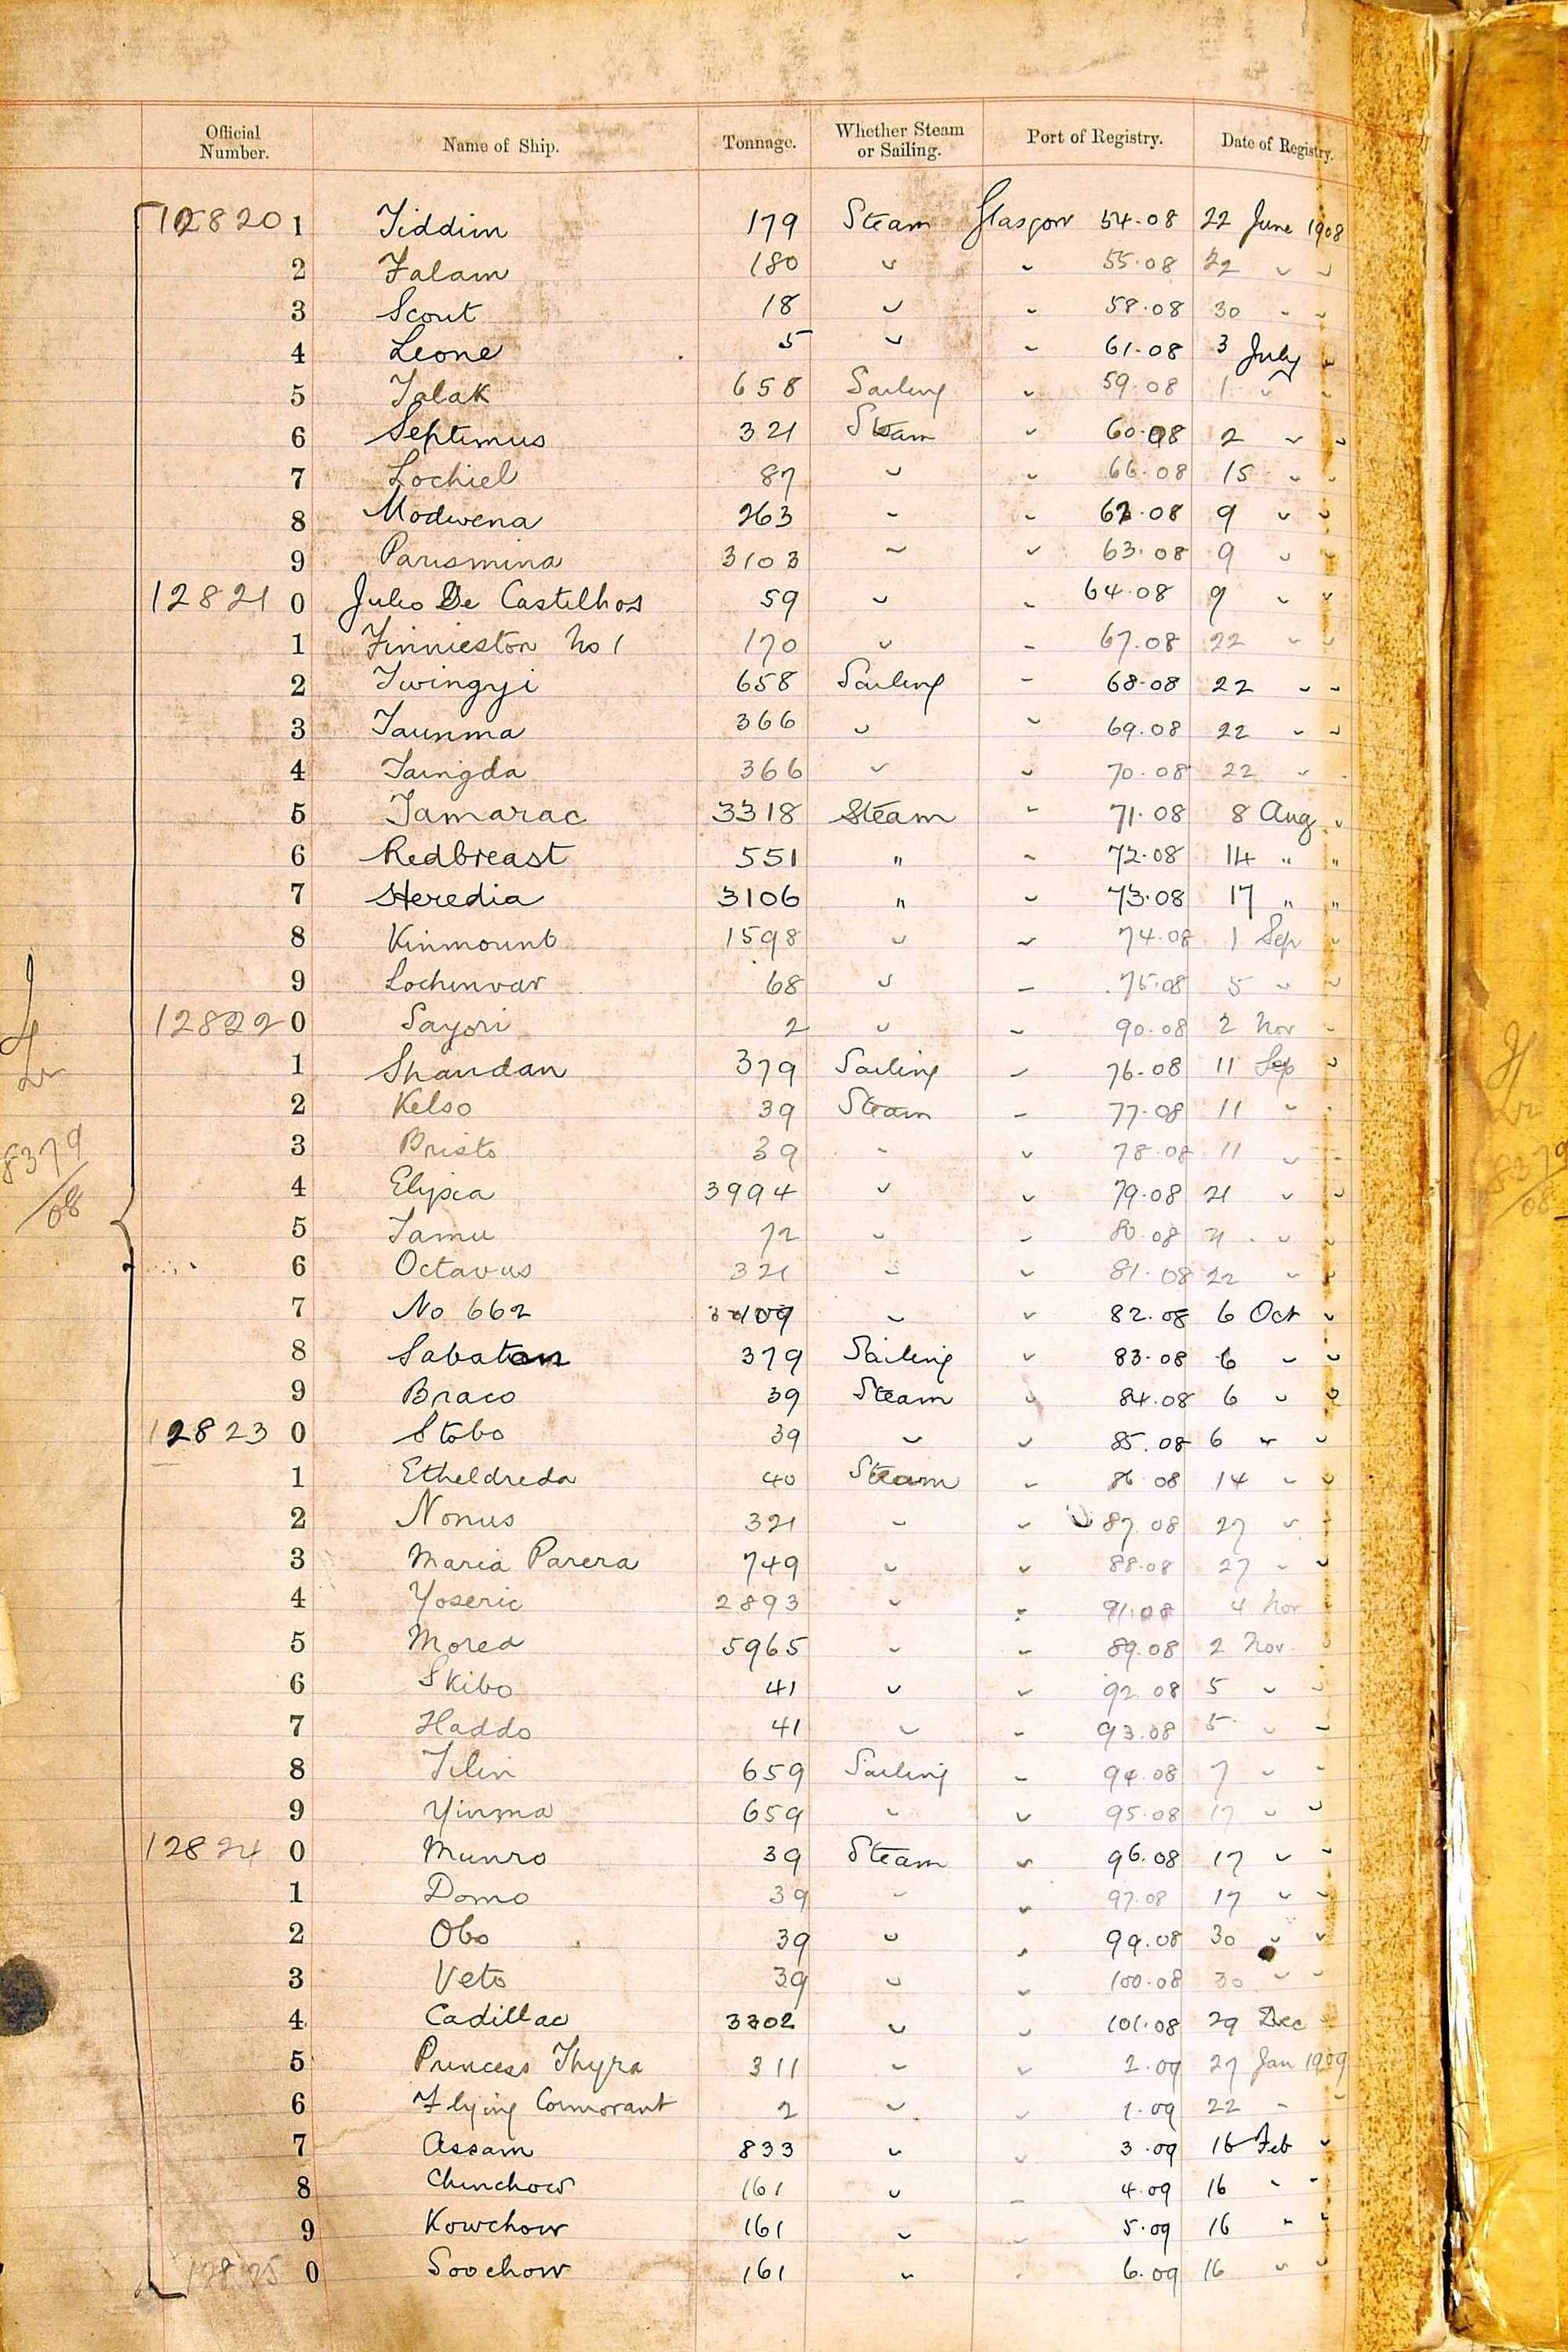 Official Number. Name of Ship. Tonnage. Whether Steam or Sailing. Port of Registry. Date of Registry.
12820 1 Tiddim 179 Steam Glasgow 54.08 22 June 1908
2 Falam 180 " " 55.08 22 " "
3 Scout 18 " " 58.08 30 " "
4 Leone 5 " " 61.08 3 July "
5 Talak 658 Sailing " 59.08 1 " "
6 Septimus 321 Steam " 60.08 2 " "
7 Lochiel 87 " " 66.08 15 " "
8 Modwena 263 " " 62.08 9 " "
9 Parismina 3103 " " 63.08 9 " "
12821 0 Julio De Castilhos 59 " " 64.08 9 " "
1 Finnieston No 1 170 " " 67.08 22 " "
2 Twingyi 658 Sailing " 68.08 22 " "
3 Taunma 366 " " 69.08 22 " "
4 Taingda 366 " " 70.08 22 " "
5 Tamarac 3318 Steam " 71.08 8 Aug "
6 Redbreast 551 " " 72.08 14 " "
7 Heredia 3106 " " 73.08 17 " "
8 Kinmount 1598 " " 74.08 1 Sep "
9 Lochinvar 68 " " 75.08 5 " "
12822 0 Sayori 2 " " 90.08 2 Nov "
1 Shandan 379 Sailing " 76.08 11 Sep "
2 Kelso 39 Steam " 77.08 11 " "
3 Bristo 39 " " 78.08 11 " "
4 Elysia 3994 " " 79.08 21 " "
8379/08
5 Tamu 72 " " 80.08 21 " "
6 Octavus 321 " " 81.08 22 " "
7 No 662 409 " " 82.08 6 Oct "
8 Sabatan 379 Sailing " 83.08 6 " "
9 Braco 39 Steam " 84.08 6 " "
12823 0 Stobo 39 " " 85.08 6 " "
1 Etheldreda 40 Steam " 86.08 14 " "
2 Nonus 321 " " 87.08 27 " "
3 Maria Parera 749 " " 88.08 27 " "
4 Yoseric 2893 " " 91.08 4 Nov "
5 Morea 5965 " " 89.08 2 Nov. "
6 Skibo 41 " " 92.08 5 " "
7 Haddo 41 " " 93.08 5 " "
8 Tilin 659 Sailing " 94.08 7 " "
9 Yinma 659 " " 95.08 17 " "
12824 0 Munro 39 Steam " 96.08 17 " "
1 Domo 39 " " 97.08 17 " "
2 Obo 39 " " 99.08 30 " "
3 Veto 39 " " 100.08 30 " "
4 Cadillac 3302 " " 101.08 29 Dec "
5 Princess Thyra 311 " " 2.09 27 Jan 1909
6 Flying Cormorant 2 " " 1.09 22 " "
7 Assam 833 " " 3.09 16 Feb "
8 Chinchow 161 " " 4.09 16 " "
9 Kowchow 161 " " 5.09 16 " "
12825 0 Soochow 161 " " 6.09 16 " "